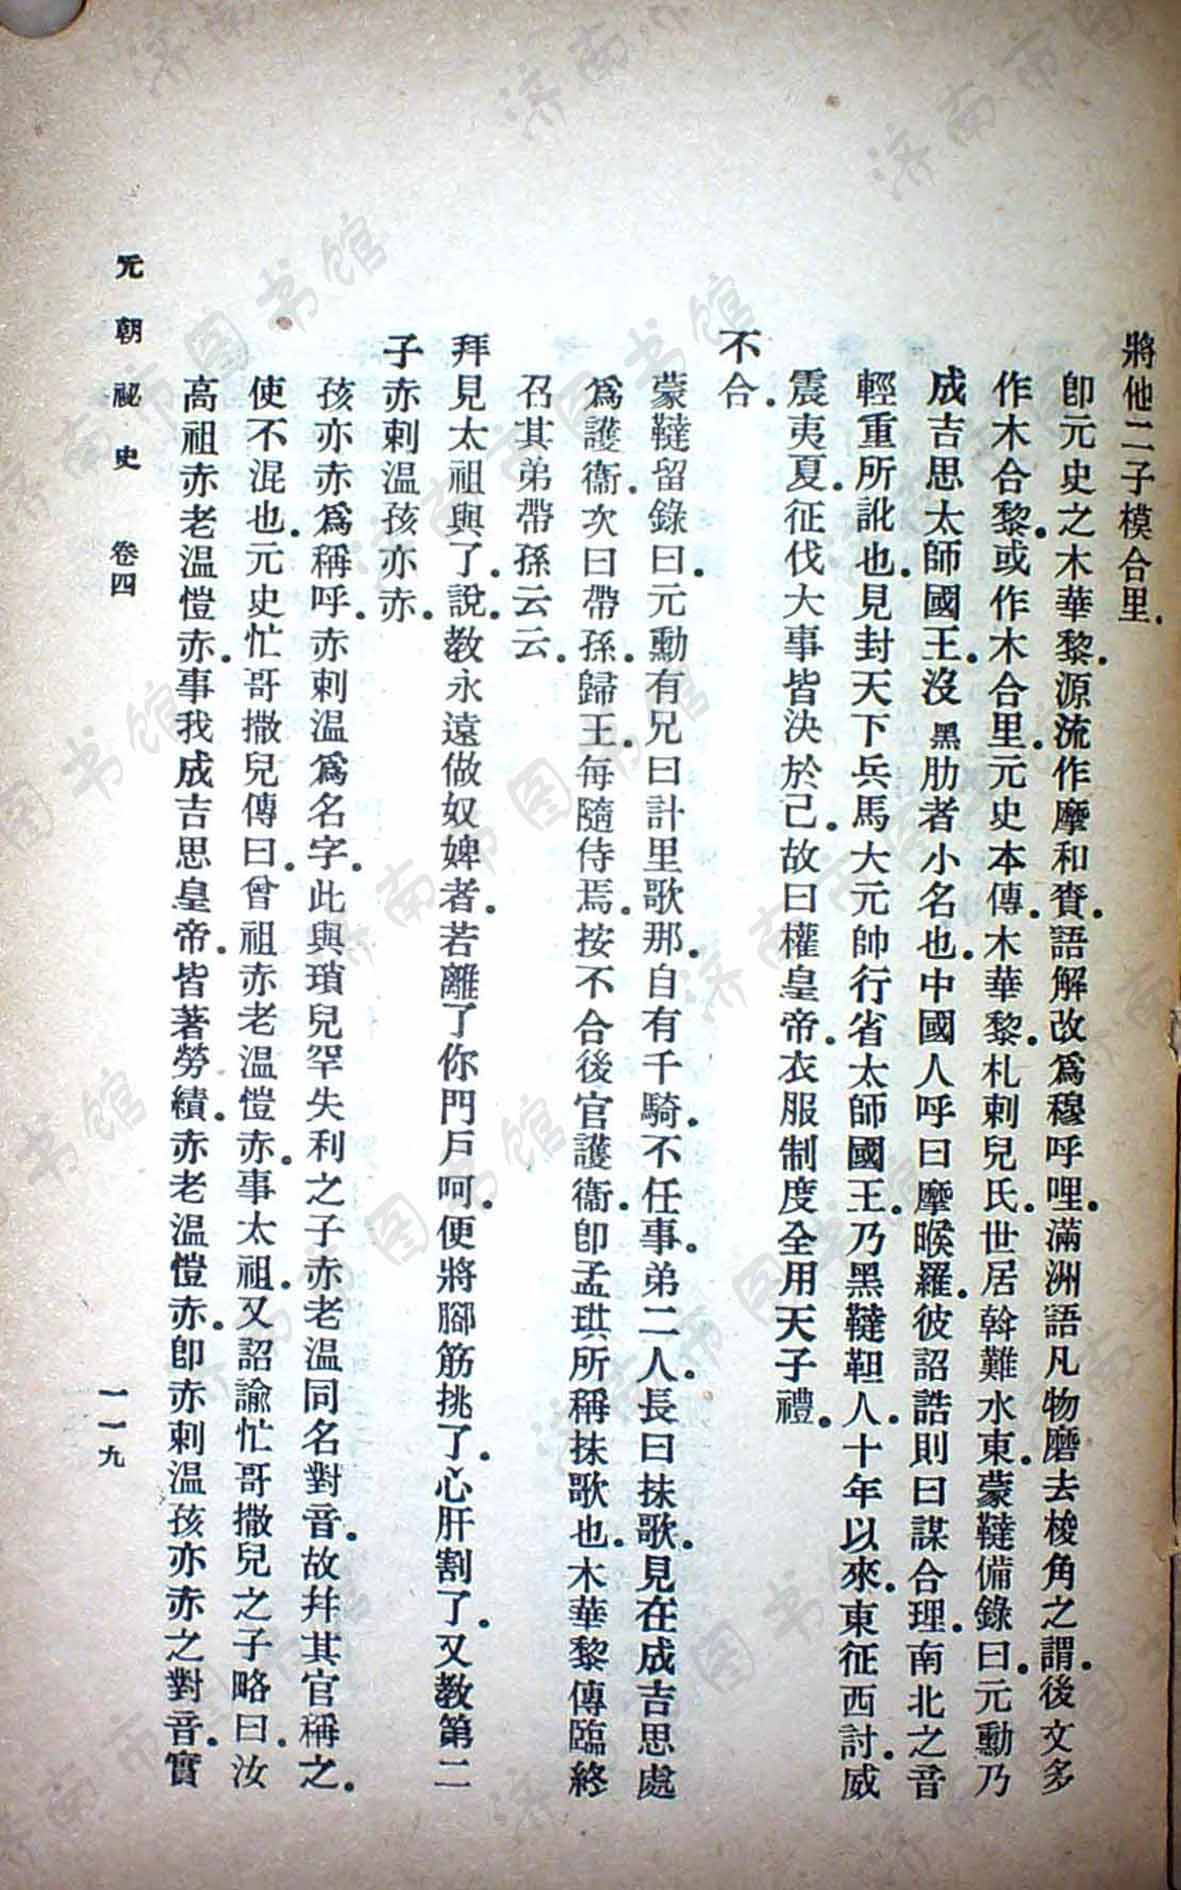 將他二子模合里.
卽元史之木華黎.源流作摩和賚.語解改爲穆呼哩.滿洲語凡物磨去梭角之謂.後文多
作木合黎.或作木合里.元史本傳.木華黎.札剌兒氏.世居斡難水東.蒙韃備錄曰.元勳乃
成吉思太師國王.沒黑肋者小名也.中國人呼曰摩睺羅.彼詔誥則曰謀合理.南北之音
輕重所訛也.見封天下兵馬大元帥行省太師國王.乃黑韃靼人.十年以來.東征西討.威
震夷夏.征伐大事皆決於己.故曰權皇帝.衣服制度全用天子禮.
不合.
蒙韃留錄曰.元勳有兄曰計里歌那.自有千騎.不任事.弟二人.長曰抹歌.見在成吉思處
爲護衞.次曰帶孫.歸王.每隨侍焉.按不合後官護衞.卽孟珙所稱抹歌也.木華黎傳臨終
召其弟帶孫云云.
拜見太祖與了.說.教永遠做奴婢者.若離了你門戶呵.便將腳筋挑了.心肝割了.又教第二
子赤剌溫孩亦赤.
孩亦赤爲稱呼.赤剌溫爲名字.此與瑣兒罕失利之子赤老溫同名對音.故幷其官稱之.
使不混也.元史忙哥撒兒傳曰.曾祖赤老溫愷赤.事太祖.又詔諭忙哥撒兒之子略曰.汝
高祖赤老溫愷赤.事我成吉思皇帝.皆著勞績.赤老溫愷赤.卽赤剌溫孩亦赤之對音.實
元朝祕史 卷四 一一九
济南市图书馆